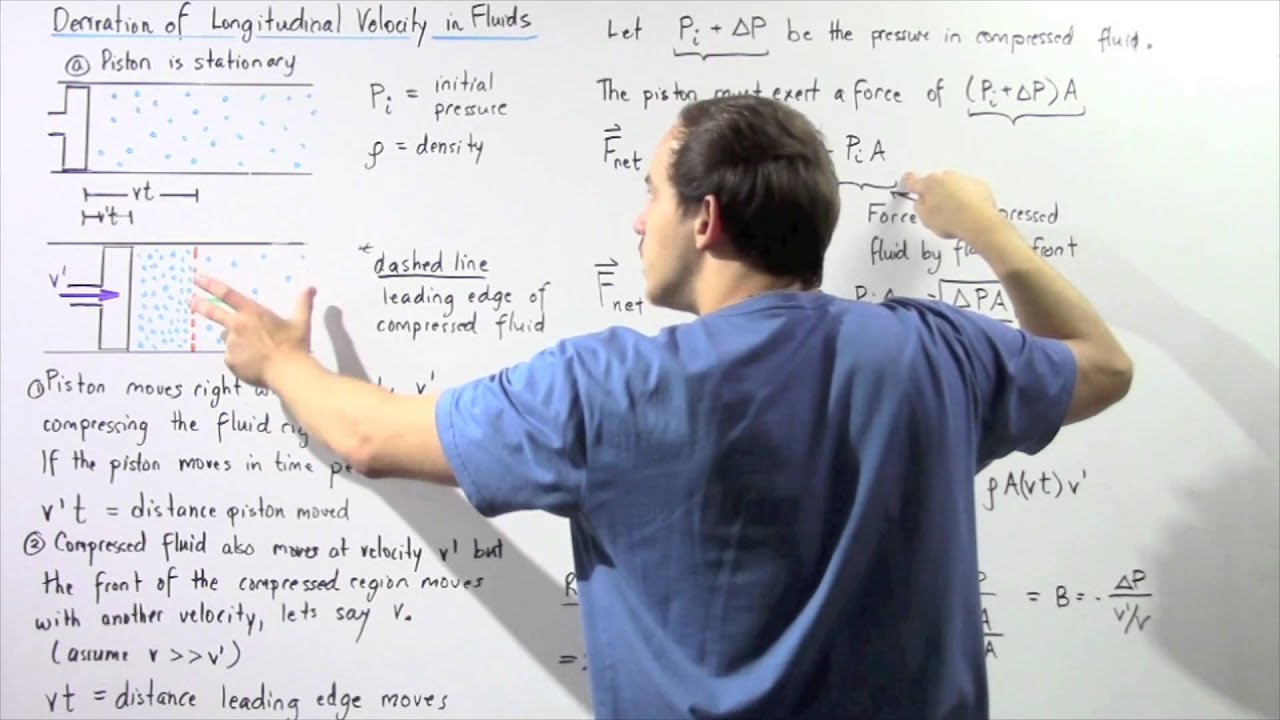 Derivation of Longitudinal Velocity in Fluids
ⓐ Piston is stationary
Pᵢ = initial pressure
ρ = density
vt
v't
v'
* dashed line
leading edge of
compressed fluid
① Piston moves right v'
compressing the fluid
If the piston moves in time
v't = distance piston moved
② Compressed fluid also moves at velocity v' but
the front of the compressed region moves
with another velocity, lets say v.
(assume v >> v')
vt = distance leading edge moves
Let Pᵢ + ΔP be the pressure in compressed fluid.
The piston must exert a force of (Pᵢ + ΔP)A
F⃗net - PᵢA
Force
fluid by front
F⃗net ΔPA
ρA(vt)v'
= B = - ΔP / v'/v